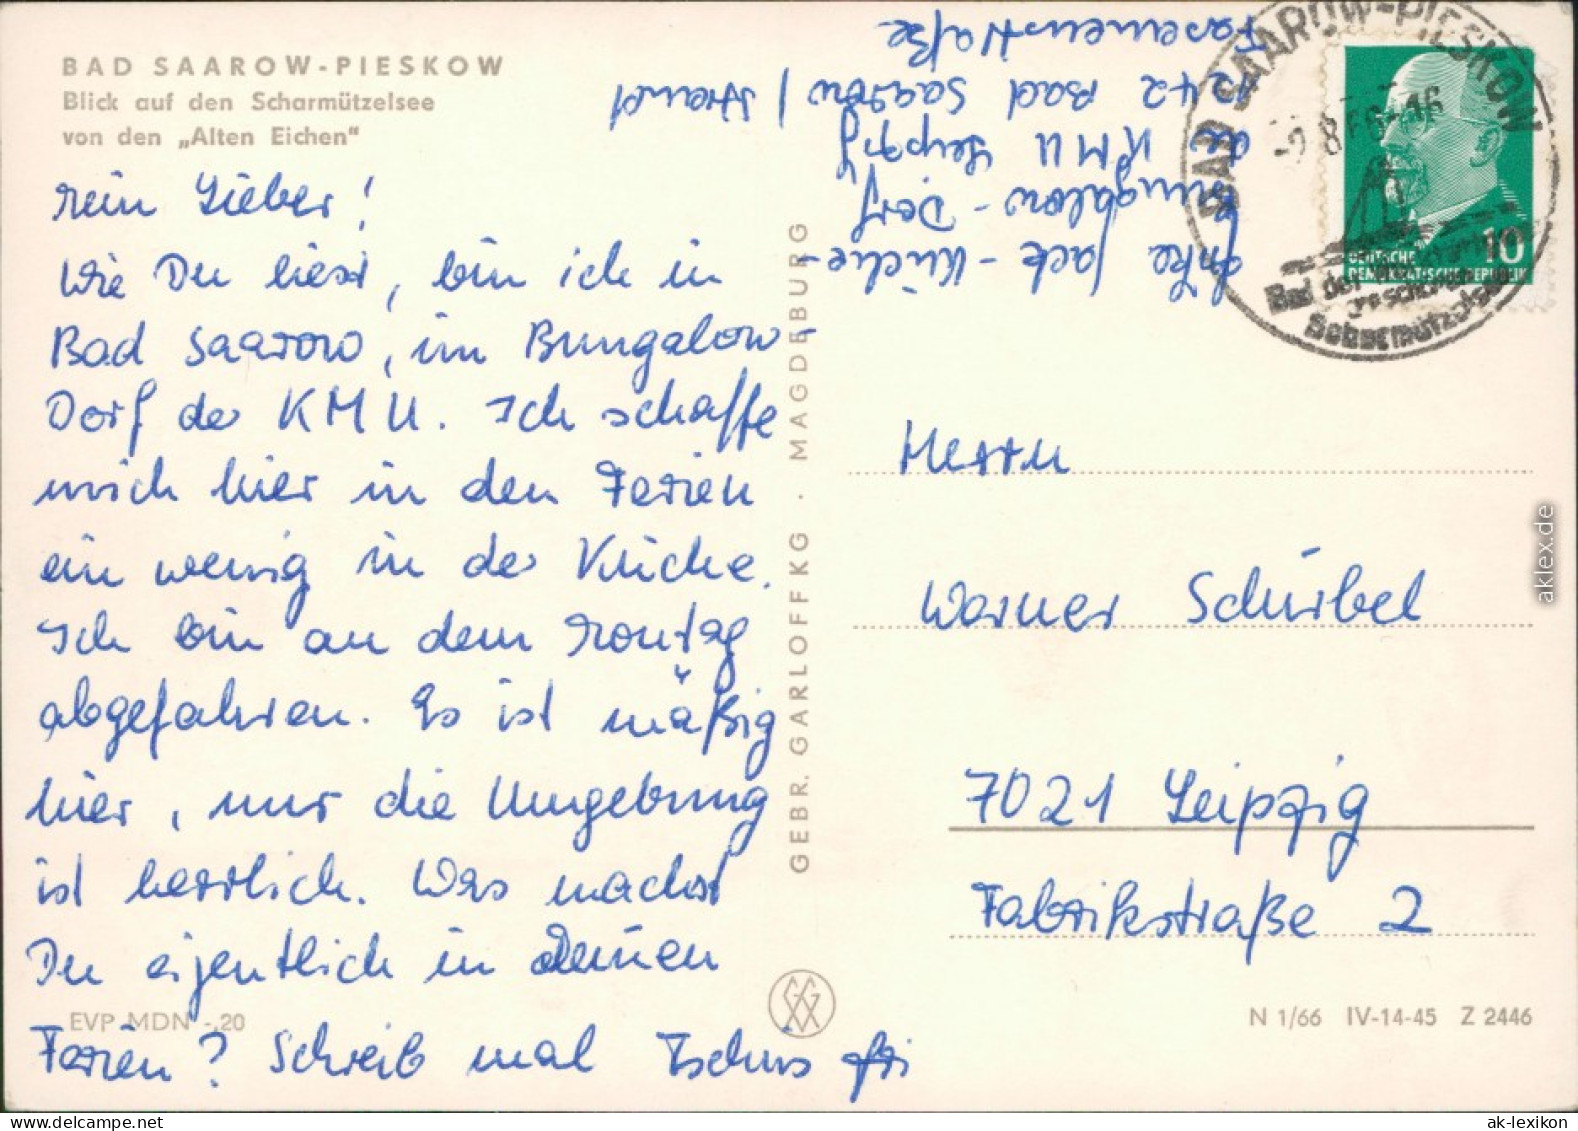 BAD SAAROW-PIESKOW
Blick auf den Scharmützelsee
von den „Alten Eichen“
Mein Lieber!
Wie Du liest, bin ich in
Bad Saarow, im Bungalow-
Dorf der KMU. Ich schaffe
mich hier in den Ferien
ein wenig in der Küche.
Ich bin an dem Montag
abgefahren. Es ist mäßig
hier, nur die Umgebung
ist herrlich. Was machst
Du eigentlich in Deinen
Ferien? Schreib mal Tschüs
EVP MDN -,20
GEBR. GARLOFF KG · MAGDEBURG
Küche-
Bungalow-Dorf
der KMU Leipzig
1242 Bad Saarow / Strand
BAD SAAROW-PIESKOW
-2.8.66-16
Bad der
Scharmützelsee
10
DEUTSCHE
DEMOKRATISCHE REPUBLIK
Herrn
Werner Schürbel
7021 Leipzig
Fabrikstraße 2
N 1/66 IV-14-45 Z 2446
aklex.de
ak-lexikon